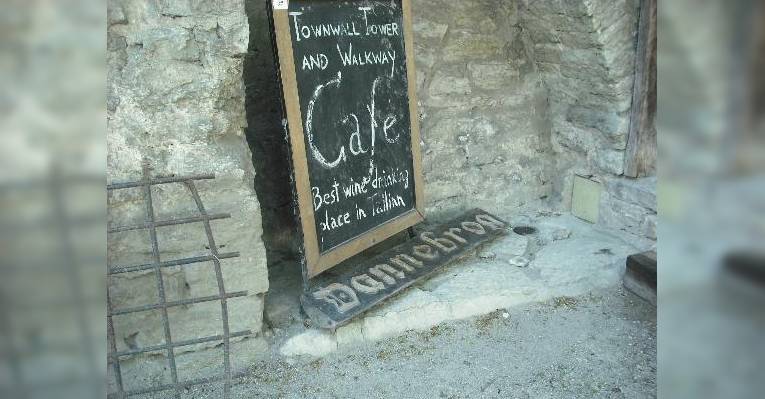 Townwall Tower
and Walkway
Cafe
Best wine drinking
place in Tallian
Dannebrog